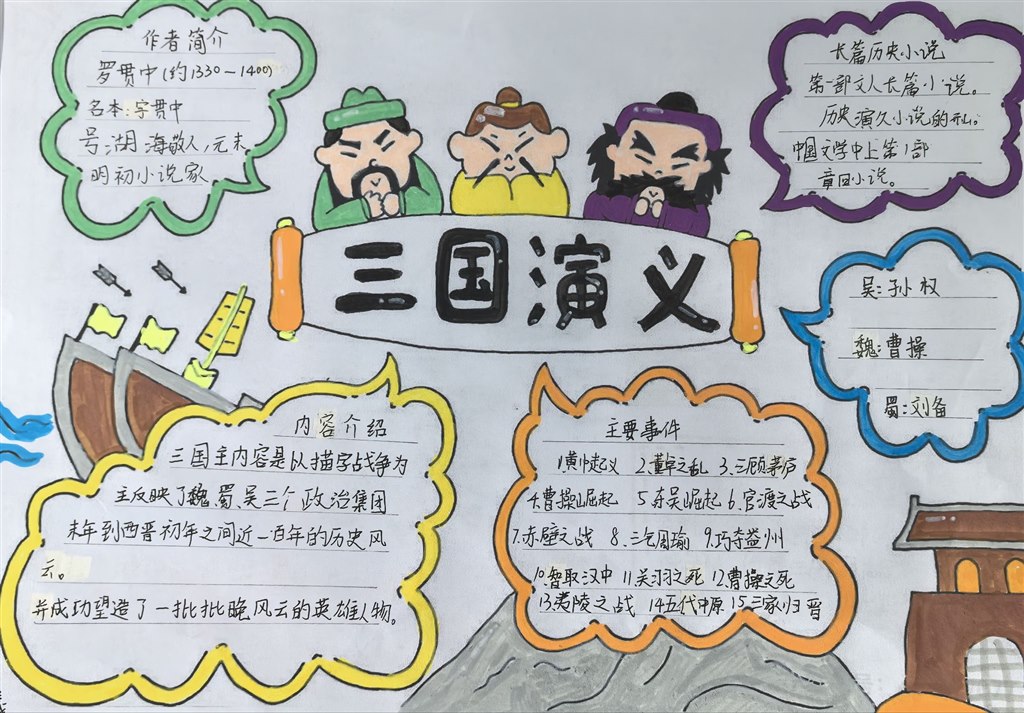 作者简介
罗贯中(约1330—1400)
名本:字贯中
号湖海散人,元末
明初小说家
长篇历史小说
第一部文人长篇小说。
历史演义小说的开山。
中国文学中上第1部
章回小说。
三国演义
吴:孙权
魏:曹操
蜀:刘备
内容介绍
三国主内容是以描字战争为
主反映了魏、蜀、吴三个政治集团
末年到西晋初年之间近一百年的历史风
云。
并成功塑造了一批批晚风云的英雄人物。
主要事件
1黄巾起义 2.董卓之乱 3.三顾茅庐
4.曹操崛起 5东吴崛起 6.官渡之战
7.赤壁之战 8.三气周瑜 9.巧夺益州
10.智取汉中 11关羽之死 12曹操之死
13夷陵之战 14五代中原 15三家归晋